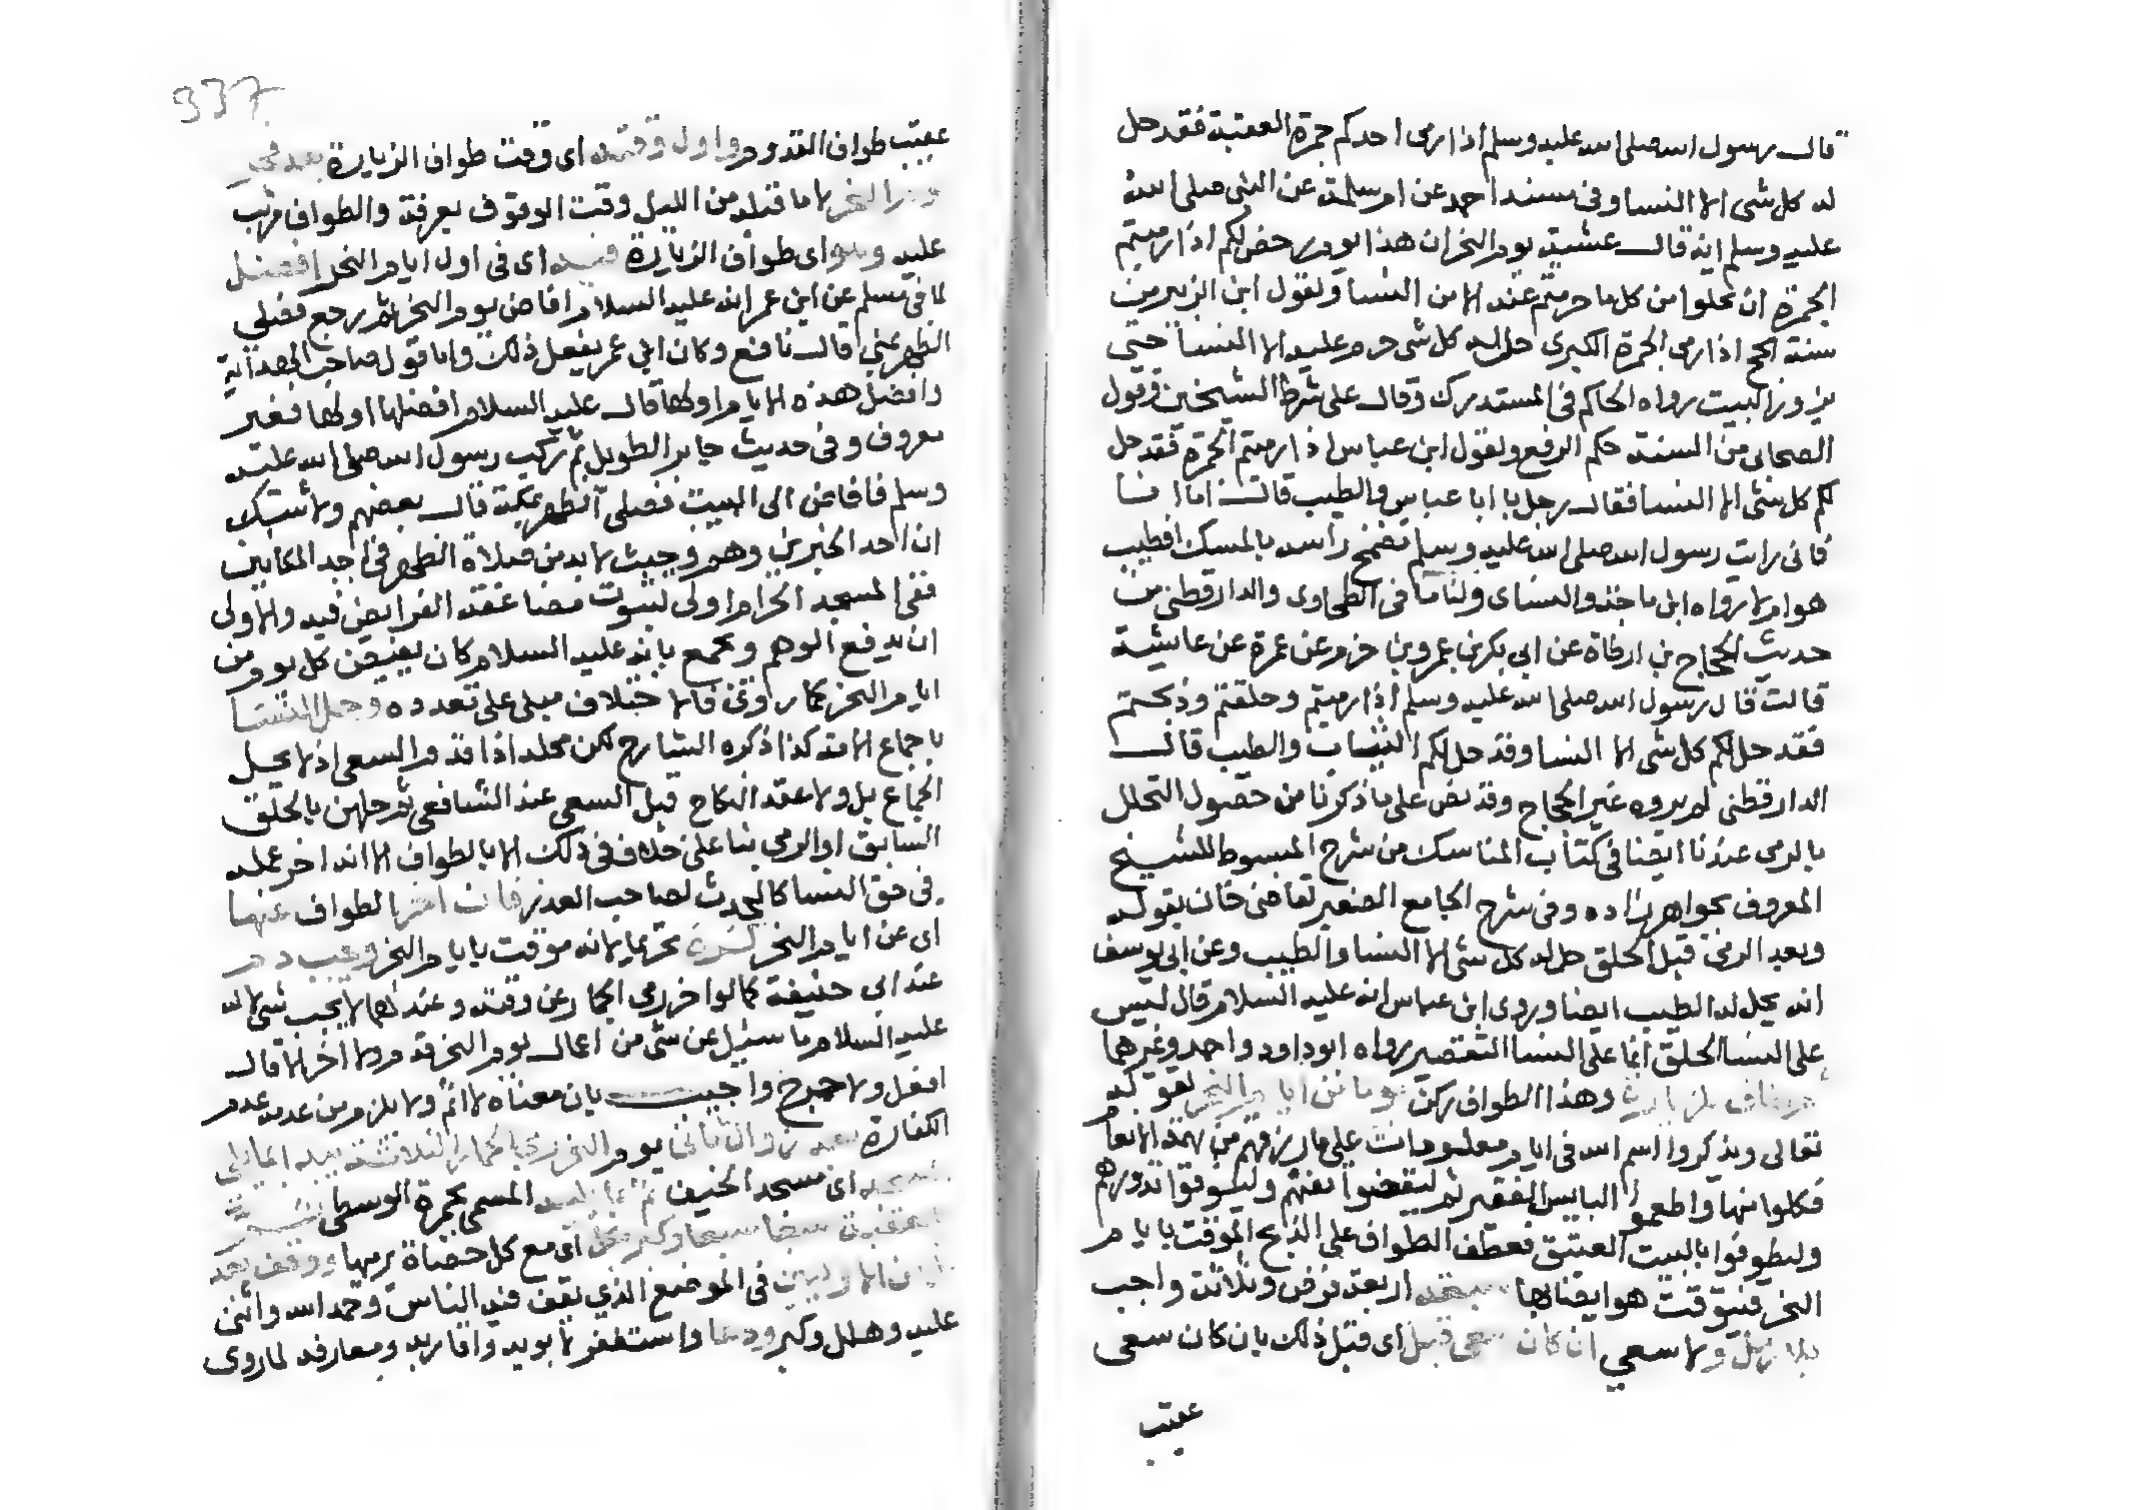 قال رسول الله صلى الله عليه وسلم اذا رمى احدكم جمرة العقبة فقد حل
له كل شي الا النسا وفي مسند احمد عن ام سلمة عن النبي صلى الله
عليه وسلم انه قال عشية يوم النحر ان هذا يوم رخص لكم اذا رميتم
الجمرة ان تحلوا من كل ما حرمتم عنه الا من النسا ولقول ابن الزبير من
سنة الحج اذا رمى الجمرة الكبرى حل له كل شي حرم عليه الا النسا حتى
يزور البيت رواه الحاكم في المستدرك وقال على شرط الشيخين وقول
الصحابي من السنة حكم الرفع ولقول ابن عباس اذا رميتم الجمرة فقد حل
لكم كل شي الا النسا فقال رجل يا ابا عباس والطيب قال اما انا
فاني رايت رسول الله صلى الله عليه وسلم تضمخ راسه بالمسك افطيب
هو ام لا رواه ابن ماجة والنساي ولنا ما في الطحاوي والدارقطني من
حديث الحجاج بن ارطاة عن ابي بكر بن عمرو بن حزم عن عمرة عن عايشة
قالت قال رسول الله صلى الله عليه وسلم اذا رميتم وحلقتم وذبحتم
فقد حل لكم كل شي الا النسا وقد حل لكم الثياب والطيب قال
الدارقطني لم يروه غير الحجاج وقد نص على ما ذكرنا من حصول التحلل
بالرمي عندنا ايضا في كتاب المناسك من شرح المبسوط للشيخ
المعروف بخواهرزاده وفي شرح الجامع الصغير لقاضي خان بقوله
وبعد الرمي قبل الحلق حل له كل شي الا النسا والطيب وعن ابي يوسف
انه يحل له الطيب ايضا وروى ابن عباس انه عليه السلام قال ليس
على النسا الحلق انما على النسا التقصير رواه ابو داود واحمد وغيرهما
للزيارة وهذا الطواف ركن يوما من ايام النحر لقوله
تعالى ويذكروا اسم الله في ايام معلومات على ما رزقهم من بهيمة الانعام
فكلوا منها واطعموا البايس الفقير ثم ليقضوا تفثهم وليوفوا نذورهم
وليطوفوا بالبيت العتيق فعطف الطواف على الذبح الموقت بايام
النحر فيتوقت هو ايضا بها سبعة اربعة فرض وثلاثة واجب
بلا رمل ولا سعي ان كان سعى قبل اي قبل ذلك بان كان سعى
عقيب
337
عقيب طواف القدوم واول وقته اي وقت طواف الزيارة بعد فجر
يوم النحر لا ما قبله من الليل وقت الوقوف بعرفة والطواف مرتب
عليه وهو اي طواف الزيارة فيه اي في اول ايام النحر افضل
لما في مسلم عن ابن عمر انه عليه السلام افاض يوم النحر ثم رجع فصلى
الظهر بمنى قال نافع وكان ابن عمر يفعل ذلك واما قول صاحب الهداية
وافضل هذه الايام اولها قال عليه السلام افضلها اولها فغير
معروف وفي حديث جابر الطويل ثم ركب رسول الله صلى الله عليه
وسلم فافاض الى البيت فصلى الظهر بمكة قال بعضهم ولا شك
ان احد الخبرين وهم وحيث لا بد من صلاة الظهر في احد المكانين
ففي المسجد الحرام اولى لثبوت مضاعفة الفرايض فيه والاولى
ان يدفع الوهم ويجمع بانه عليه السلام كان يفيض كل يوم من
ايام النحر كما روي فالاختلاف مبني على تعدده وحل النسا
باجماع الامة كذا ذكره الشارح لكن محله اذا قدم السعي اذ لا يحل
الجماع بل ولا عقد النكاح قبل السعي عند الشافعي ثم حلهن بالحلق
السابق او الرمي بنا على خلاف في ذلك لا بالطواف الا انه اخر عمله
في حق النسا كالحدث لصاحب العذر فان اخر الطواف عنها
اي عن ايام النحر كره تحريما لانه موقت بايام النحر ووجب دم
عند ابي حنيفة كما لو اخر رمي الجمار عن وقته وعندهما لا يجب شي لانه
عليه السلام ما سئل عن شي من اعمال يوم النحر قدم ولا اخر الا قال
افعل ولا حرج واجيب بان معناه لا اثم ولا يلزم من عدمه عدم
الكفارة بعد زوال الثاني يوم النحر رمى الجمار الثلاثة يبدا بما يلي
المسجد اي مسجد الخيف ثم بما يليه المسمى بجمرة الوسطى ثم
العقبة سبعا سبعا وكبر بكل اي مع كل حصاة يرميها ووقف بعد
الاوليين في الموضع الذي يقف فيه الناس وحمد الله واثنى
عليه وهلل وكبر ودعا واستغفر لابويه واقاربه ومعارفه لما روى